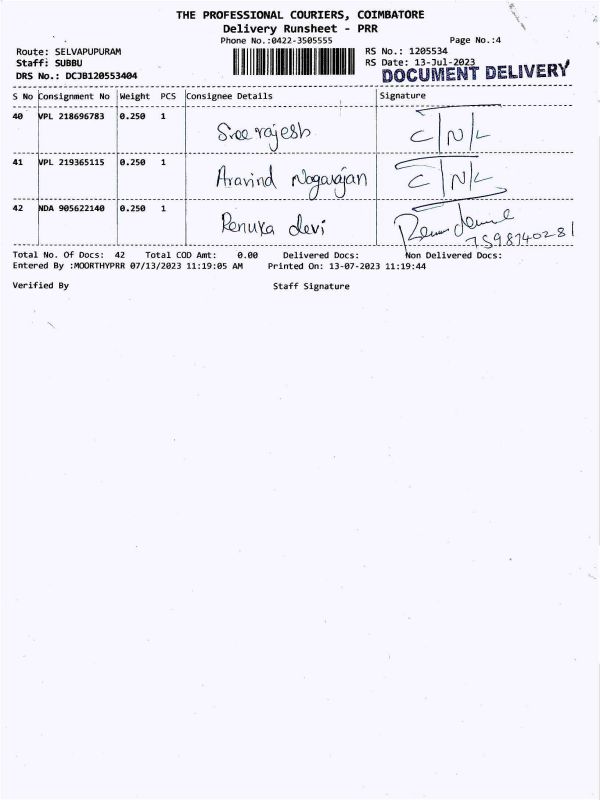 THE PROFESSIONAL COURIERS, COIMBATORE
Delivery Runsheet - PRR
Phone No.:0422-3505555 Page No.:4
Route: SELVAPUPURAM RS No.: 1205534
Staff: SUBBU RS Date: 13-Jul-2023
DRS No.: DCJB120553404 DOCUMENT DELIVERY
S No Consignment No Weight PCS Consignee Details Signature
40 VPL 218696783 0.250 1 Sree rajesh C/N/L
41 VPL 219365115 0.250 1 Aravind Nagarajan C/N/L
42 NDA 905622140 0.250 1 Renuka devi
7598740281
Total No. Of Docs: 42 Total COD Amt: 0.00 Delivered Docs: Non Delivered Docs:
Entered By :MOORTHYPRR 07/13/2023 11:19:05 AM Printed On: 13-07-2023 11:19:44
Verified By Staff Signature